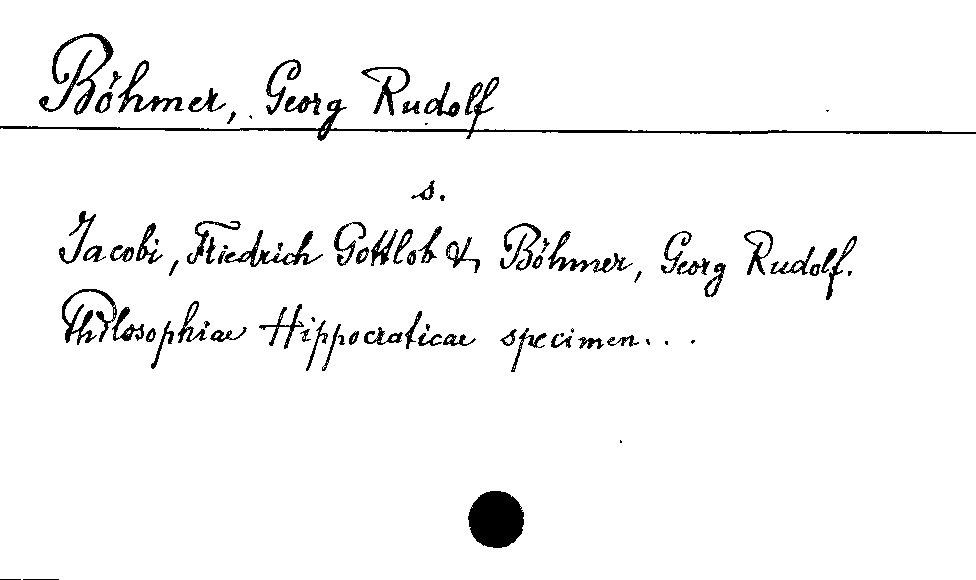 Böhmer, Georg Rudolf
s.
Jacobi, Friedrich Gottlob & Böhmer, Georg Rudolf.
Philosophiae Hippocraticae specimen...